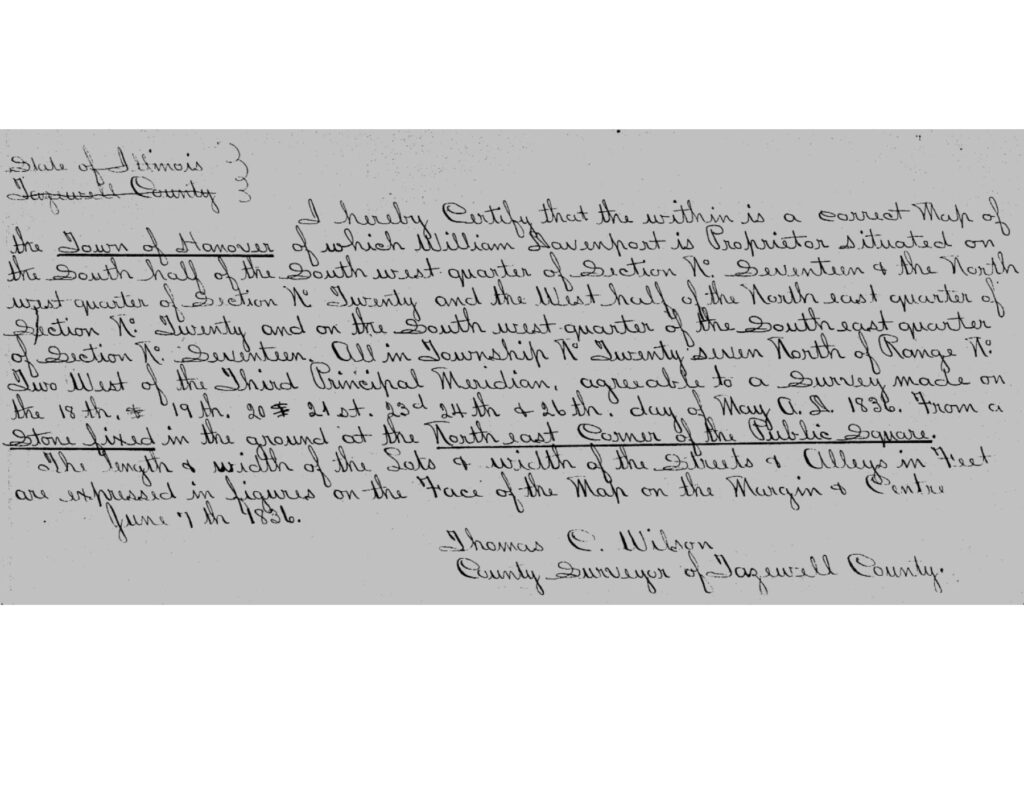 State of Illinois }
Tazewell County }
I hereby Certify that the within is a correct Map of
the Town of Hanover of which William Davenport is Proprietor situated on
the South half of the South west quarter of Section No. Seventeen & the North
west quarter of Section No Twenty and the West half of the North east quarter of
Section No. Twenty and on the South west quarter of the South east quarter
of Section No. Seventeen. All in Township No Twenty seven North of Range No.
Two West of the Third Principal Meridian. agreeable to a Survey made on
the 18th. 19th. 20 21st. 23d 24th & 26th. day of May A.D. 1836. From a
Stone fixed in the ground at the North east Corner of the Public Square.
The length & width of the Lots & width of the Streets & Alleys in Feet
are expressed in figures on the Face of the Map on the Margin & Centre
June 7th 1836.
Thomas C. Wilson
County Surveyor of Tazewell County.